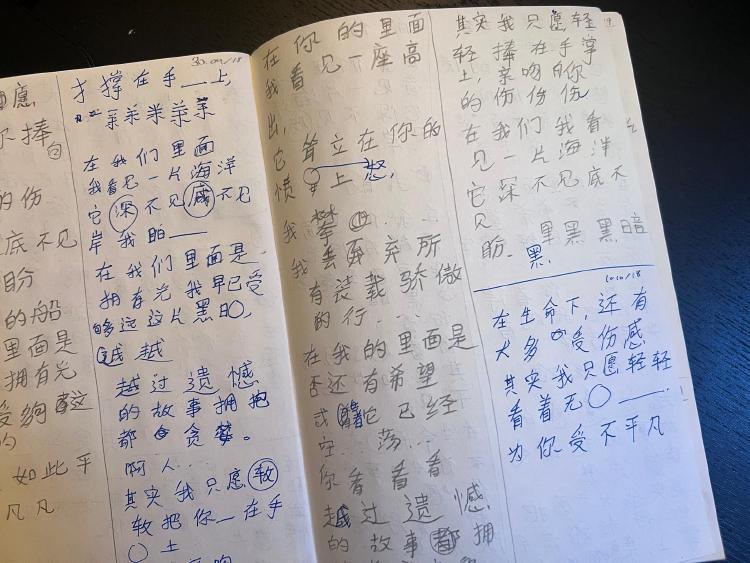 愿
尔捧
的伤
底不见
盼
的船
里面是
拥有光
受够这
的
如此平
凡凡
30.09/18
才撑在手__上,
亲亲米亲亲
在我们里面
我看见一片海洋
它深不见底不见
岸我盼__
在我们里面是
拥有光我早已受
够这这片黑
越越
越过遗憾
的故事拥抱
都贪梦。
啊人..
其实我只愿轻
轻把你_在手
〇上
在你的里面
我看见一座高
出,
它耸立在你的
愤〇上怒,
我攀
我丢弃所
有装载骄傲
的行...
在我的里面是
否还有希望
或它已经
空..荡..
你看看看
越过遗憾
的故事都拥
其实我只愿轻
轻捧在手掌
上,亲吻的你
的伤伤伤
在我们我看
见一片海洋
它深不见底不
见
盼.里黑黑暗
黑.
10.10/18
在生命下,还有
太多受伤感
其实我只愿轻轻
看着无〇__.
为你受不平凡